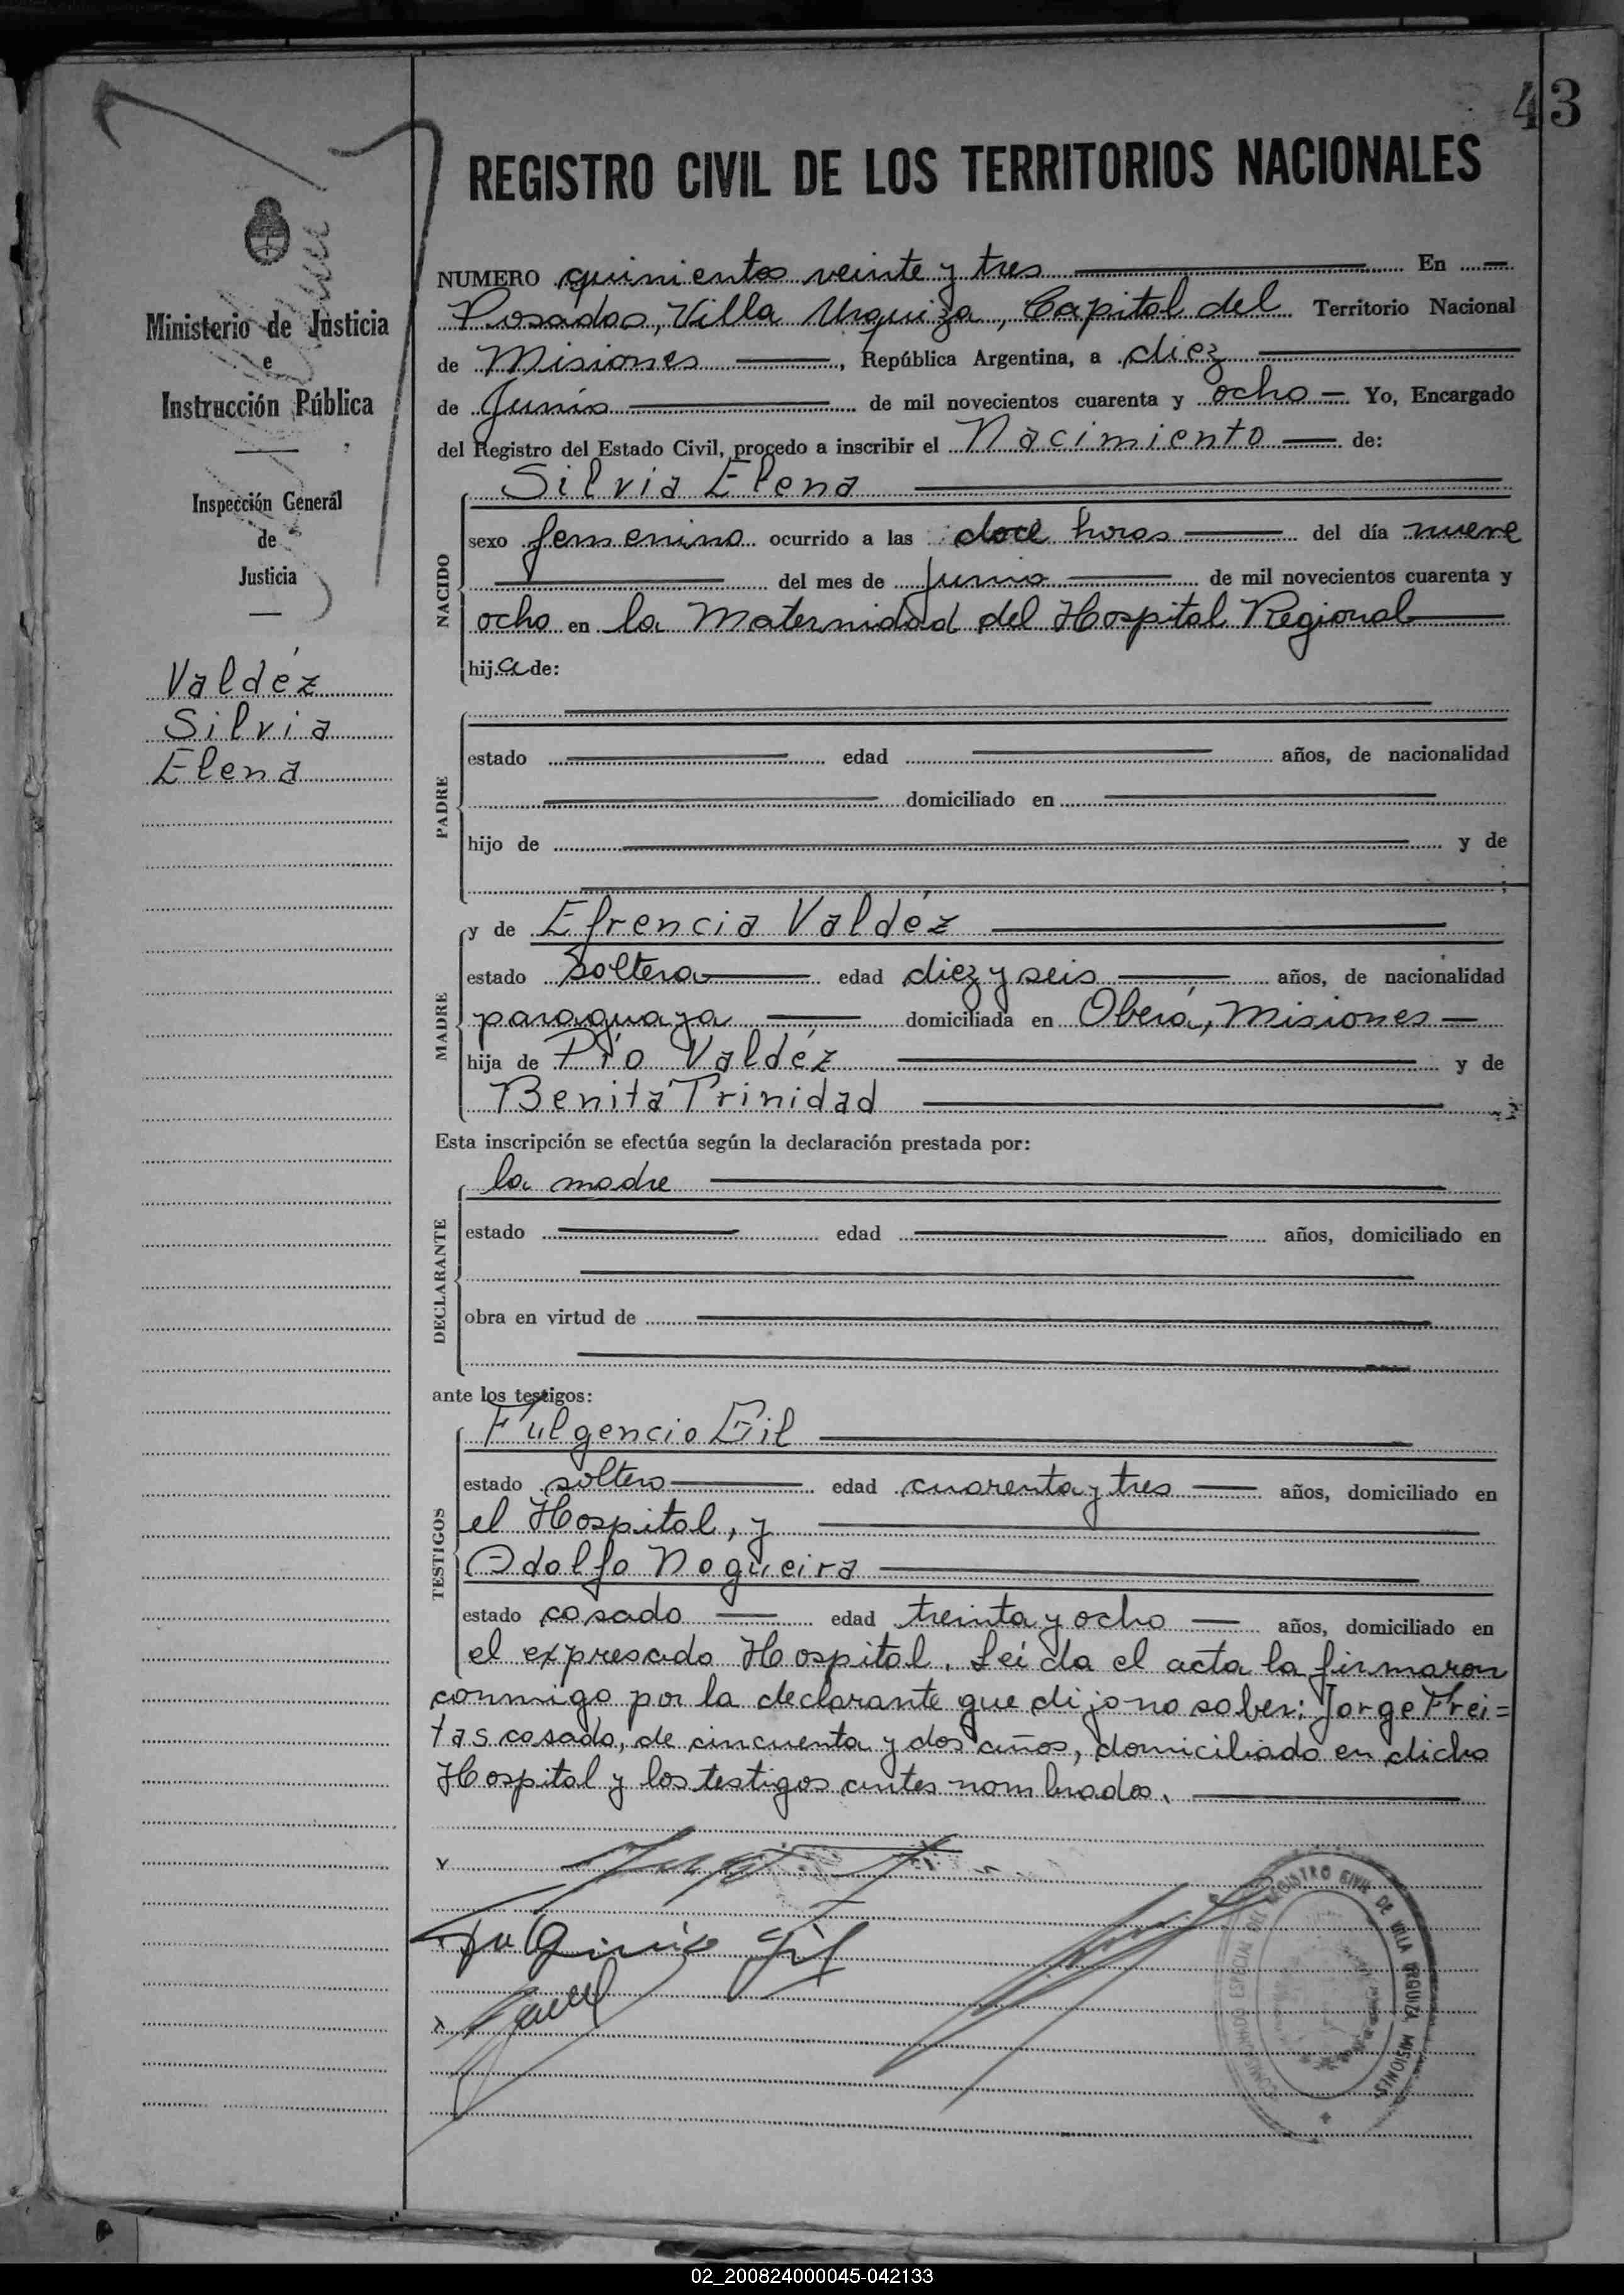 43
REGISTRO CIVIL DE LOS TERRITORIOS NACIONALES
Ministerio de Justicia
e
Instrucción Pública
Inspección General
de
Justicia
Valdéz
Silvia
Elena
NUMERO quinientos veinte y tres En
Posadas, Villa Urquiza, Capital del Territorio Nacional
de Misiones, República Argentina, a diez
de Junio de mil novecientos cuarenta y ocho Yo, Encargado
del Registro del Estado Civil, procedo a inscribir el Nacimiento de:
Silvia Elena
NACIDO
sexo femenino ocurrido a las doce horas del día nueve
del mes de junio de mil novecientos cuarenta y
ocho en la Maternidad del Hospital Regional
hija de:
PADRE
estado edad años, de nacionalidad
domiciliado en
hijo de y de
;
MADRE
y de Efrencia Valdéz
estado soltera edad diez y seis años, de nacionalidad
paraguaya domiciliada en Oberá, Misiones
hija de Pío Valdéz y de
Benita Trinidad
Esta inscripción se efectúa según la declaración prestada por:
la madre
DECLARANTE
estado edad años, domiciliado en
obra en virtud de
ante los testigos:
Fulgencio Gil
TESTIGOS
estado soltero edad cuarenta y tres años, domiciliado en
el Hospital, y
Adolfo Nogueira
estado casado edad treinta y ocho años, domiciliado en
el expresado Hospital. Leída el acta la firmaron
conmigo por la declarante que dijo no saber: Jorge Frei=
tas casado, de cincuenta y dos años, domiciliado en dicho
Hospital y los testigos antes nombrados.
Fulgencio Gil
DEL REGISTRO CIVIL DE VILLA URQUIZA MISIONES
02_200824000045-042133